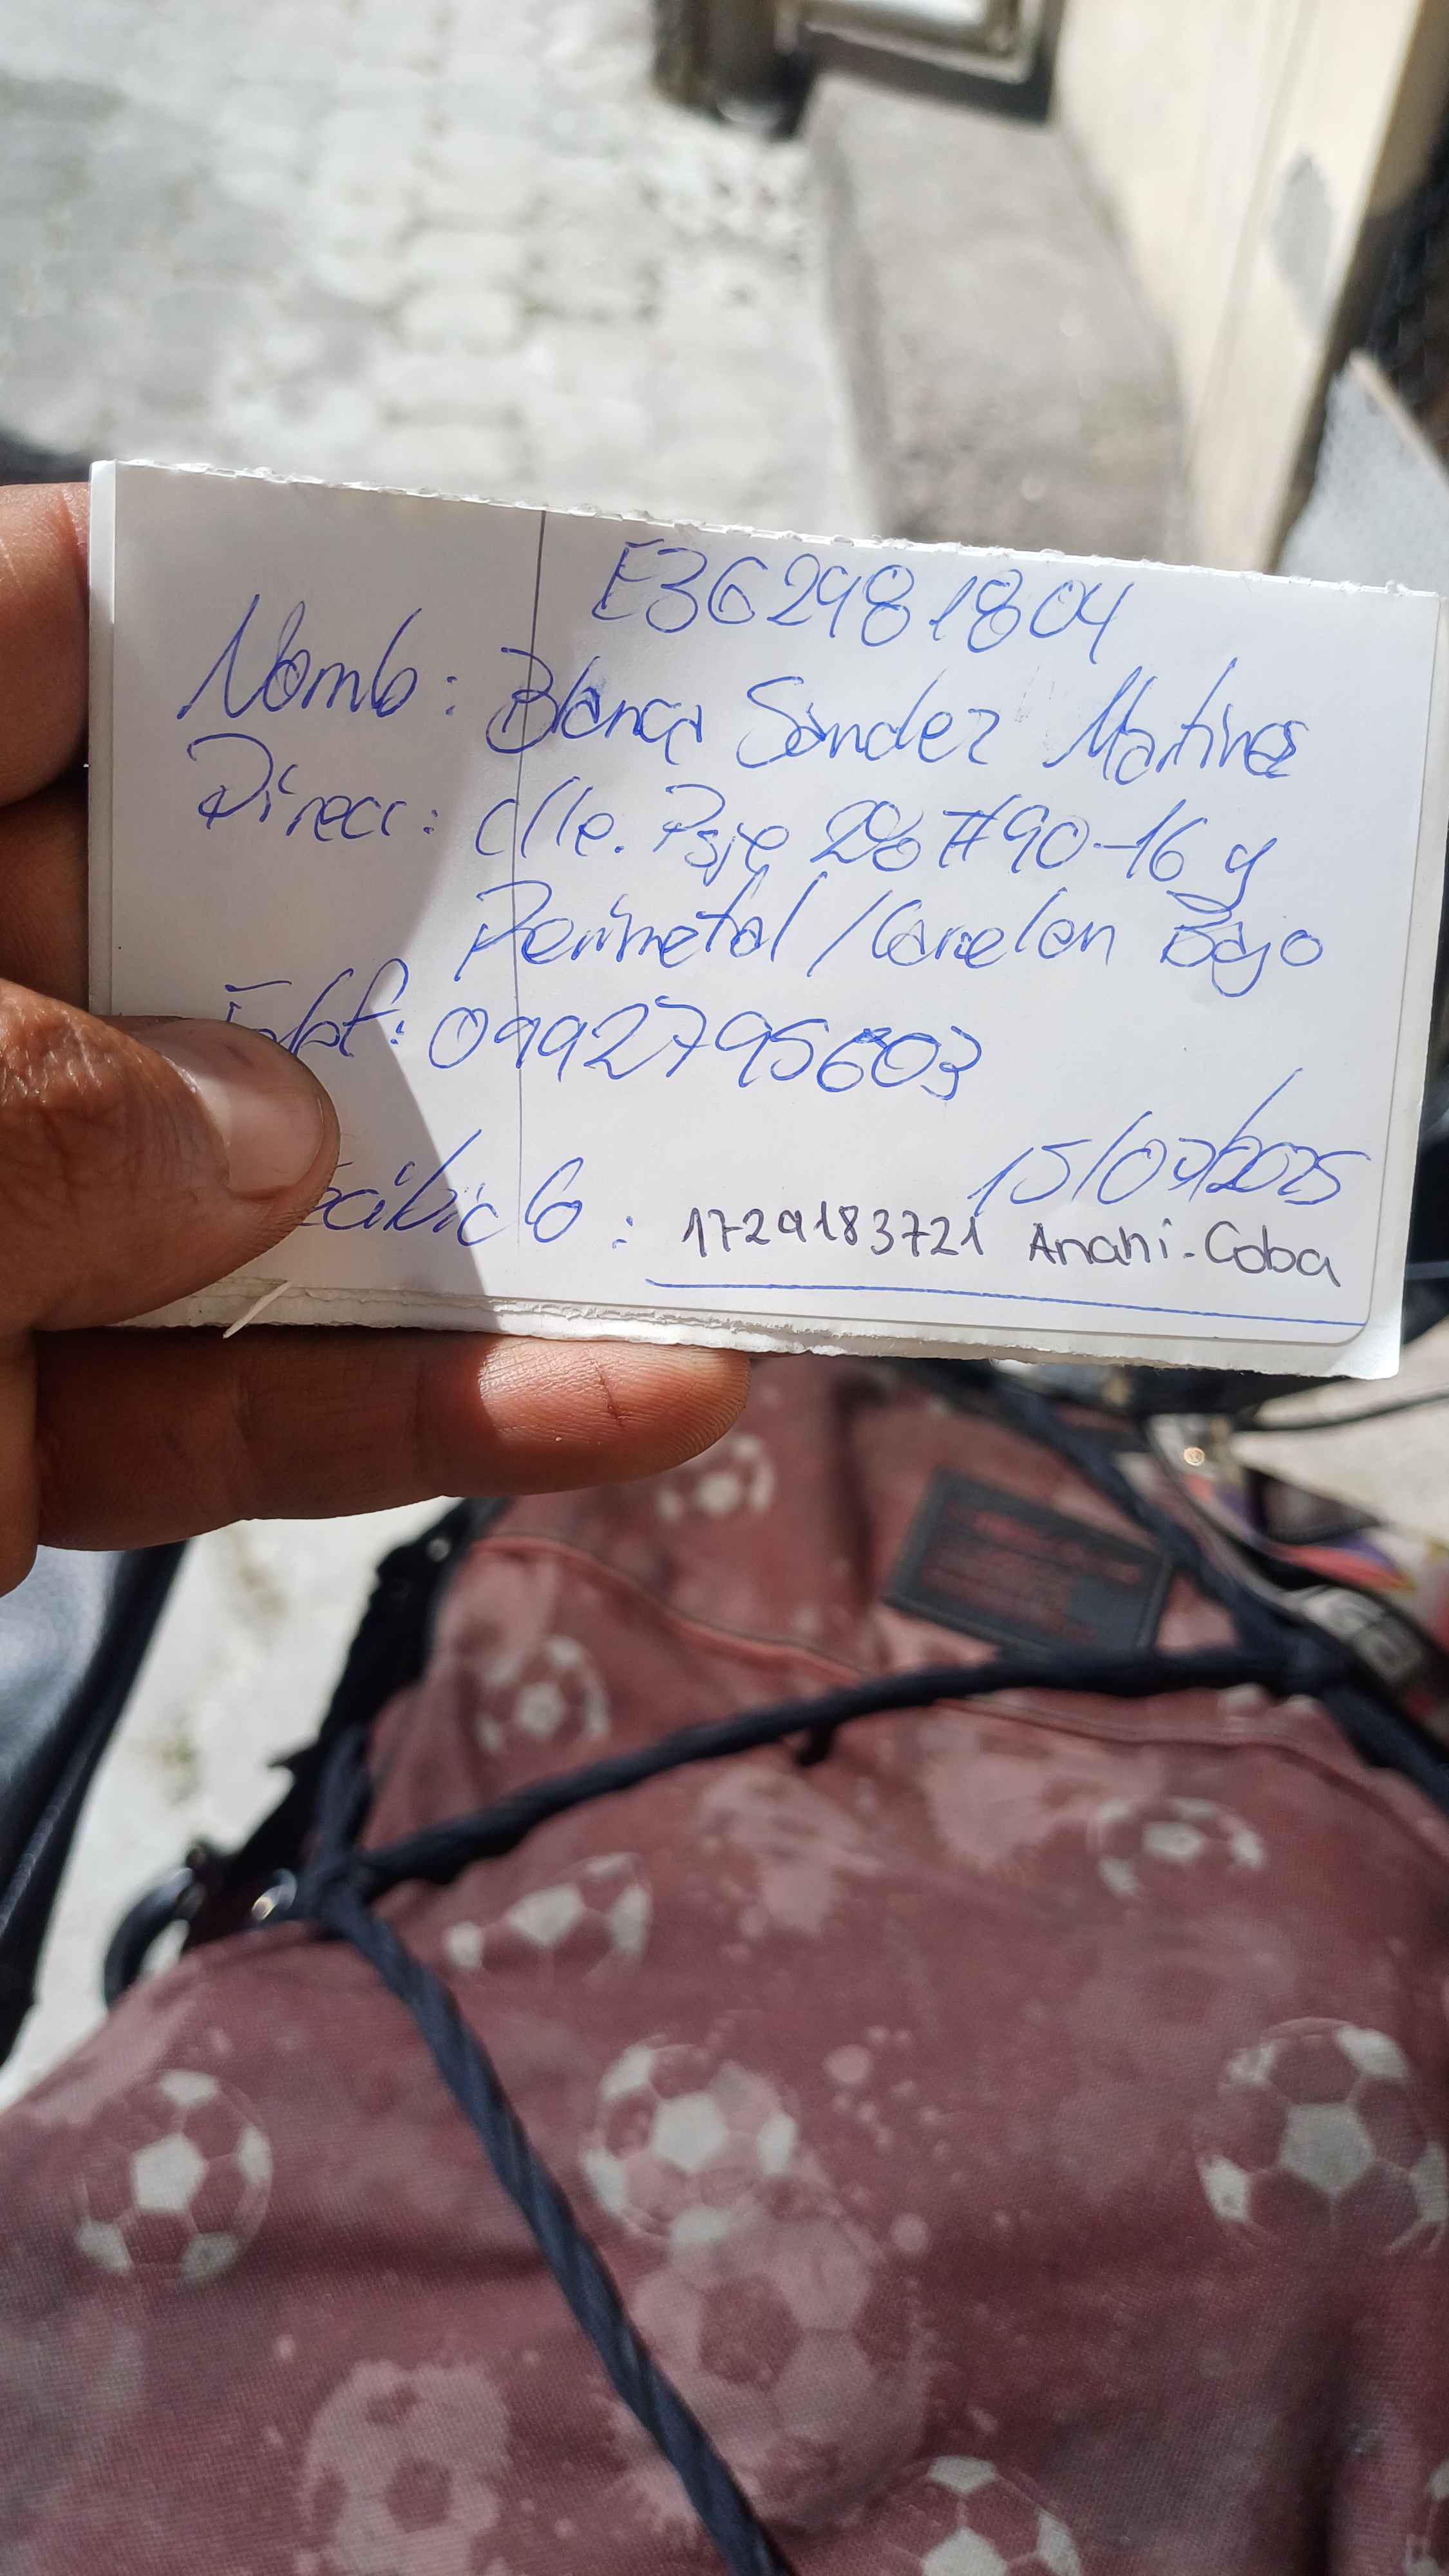 E362981804
Nomb: Blanca Sandez Martines
Direcc: Clle. Psje 28 #90-16 y
Perimetal / Carcelen Bajo
Telf: 0992795603
15/07/2025
Recibido: 1729183721 Anahi-Coba